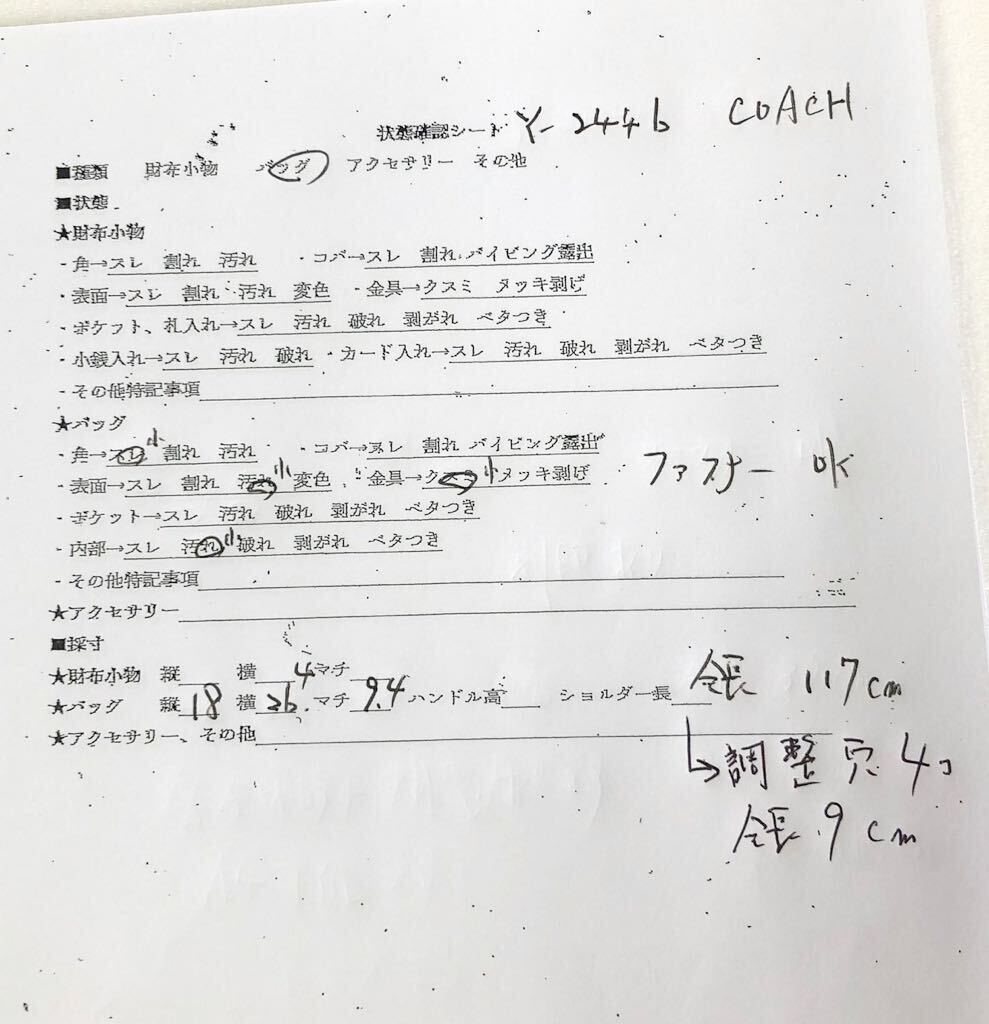 状態確認シート Y-2446 COACH
■種類 財布小物 バッグ アクセサリー その他
■状態
★財布小物
・角→スレ 割れ 汚れ ・コバ→スレ 割れ パイピング露出
・表面→スレ 割れ 汚れ 変色 ・金具→クスミ メッキ剥げ
・ポケット、札入れ→スレ 汚れ 破れ 剥がれ ベタつき
・小銭入れ→スレ 汚れ 破れ ・カード入れ→スレ 汚れ 破れ 剥がれ ベタつき
・その他特記事項
★バッグ
・角→スレ 小 割れ 汚れ ・コバ→スレ 割れ パイピング露出
・表面→スレ 割れ 汚れ 小 変色 ・金具→クスミ 小 メッキ剥げ ファスナー OK
・ポケット→スレ 汚れ 破れ 剥がれ ベタつき
・内部→スレ 汚れ 小 破れ 剥がれ ベタつき
・その他特記事項
★アクセサリー
■採寸
★財布小物 縦 横 4 マチ
★バッグ 縦 18 横 26. マチ 9.4 ハンドル高 ショルダー長 全長 117cm
★アクセサリー、その他
↳調整穴 4コ
全長 9cm